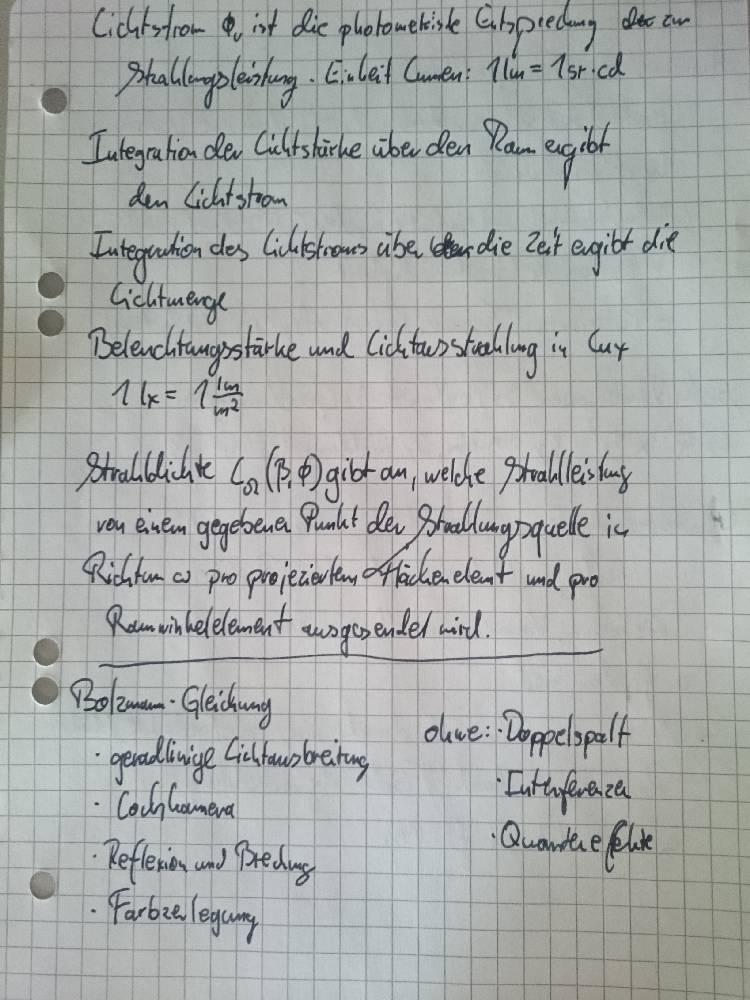 Lichtstrom Φᵥ ist die photometrische Entsprechung zur
Strahlungsleistung. Einheit Lumen: 1 lm = 1 sr · cd
Integration der Lichtstärke über den Raum ergibt
den Lichtstrom
Integration des Lichtstroms über die Zeit ergibt die
Lichtmenge
Beleuchtungsstärke und Lichtausstrahlung in Lux
1 lx = 1 lm/m²
Strahldichte L_Ω(β,Φ) gibt an, welche Strahlleistung
von einem gegebenen Punkt der Strahlungsquelle in
Richtung ω pro projeziertem Flächenelemt und pro
Raumwinkelelement ausgesendet wird.
Bolzmann-Gleichung
· geradlinige Lichtausbreitung
· Lochkamera
· Reflexion und Brechung
· Farbzerlegung
ohne: · Doppelspalt
· Interferenzen
· Quanteneffekte